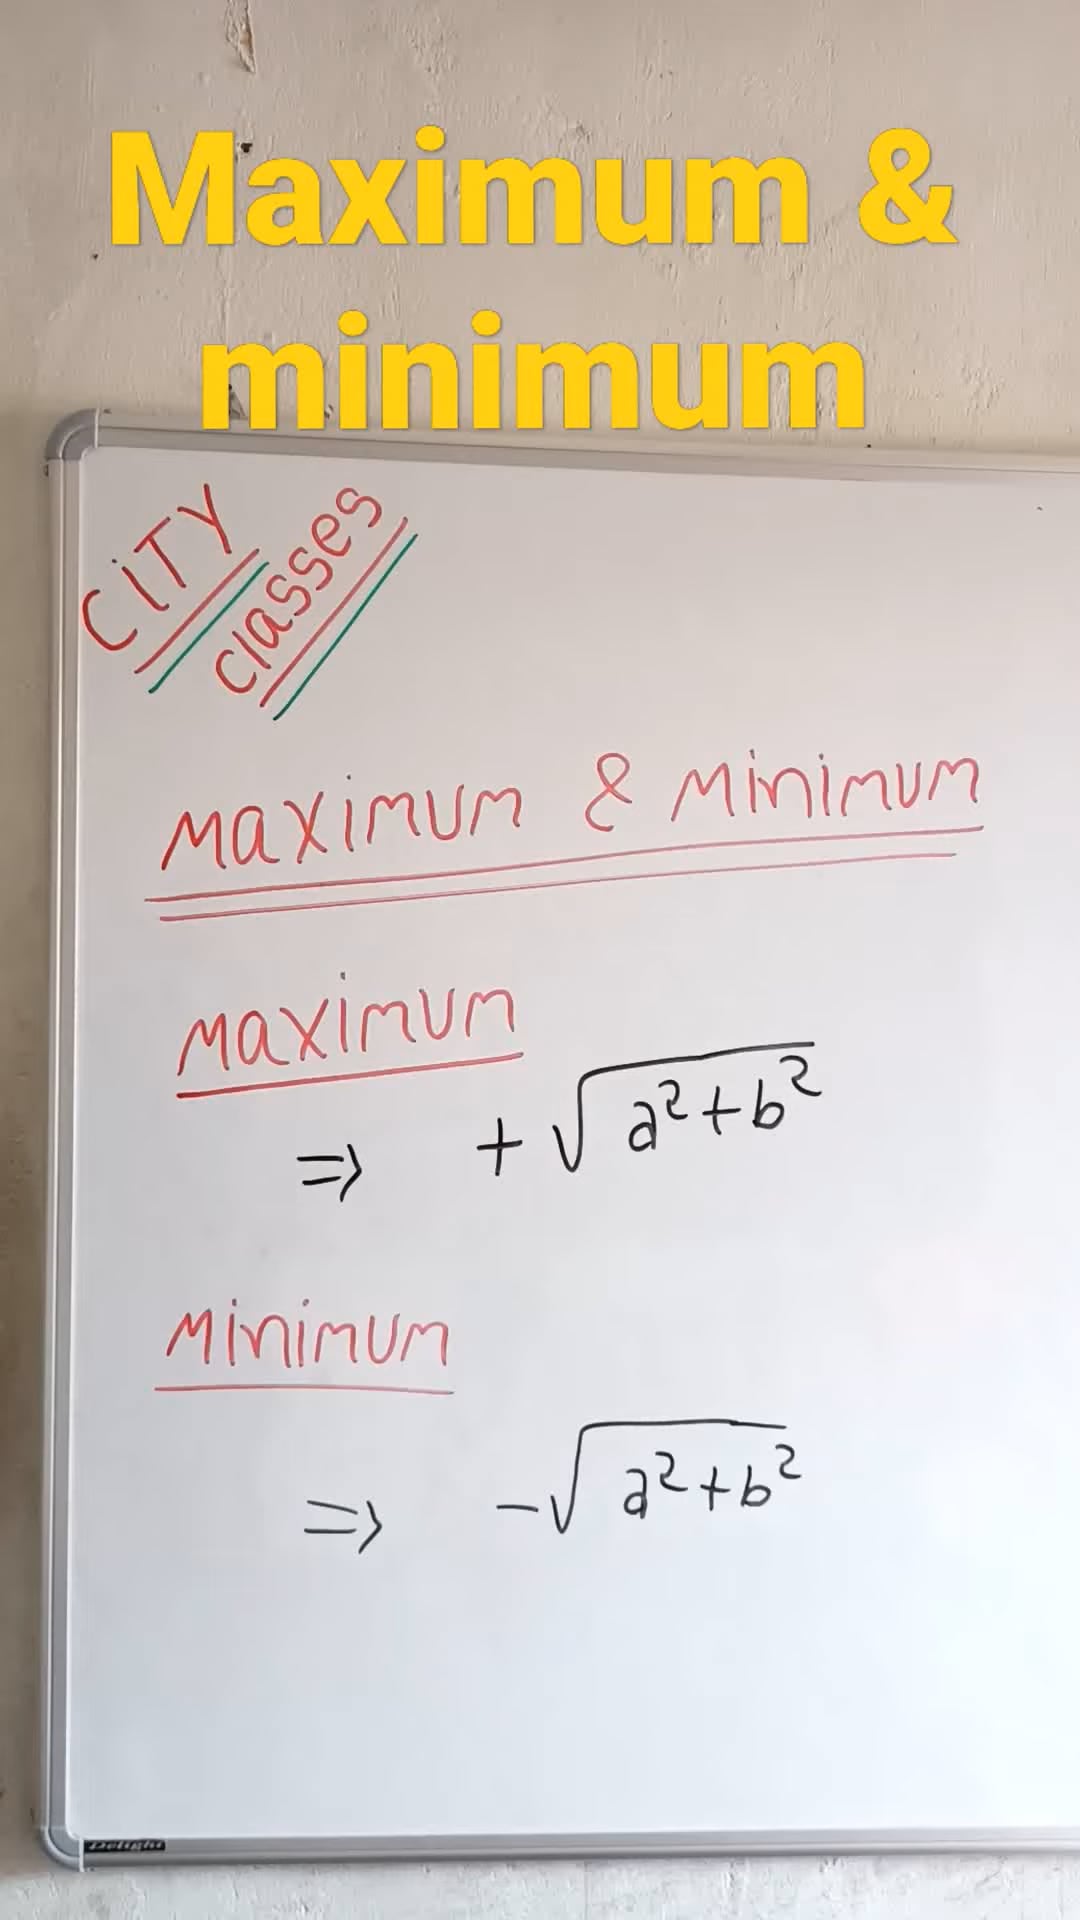 Maximum &
minimum
CiTY
classes
Maximum & Minimum
Maximum
⇒ +√a²+b²
Minimum
⇒ -√a²+b²
Delight